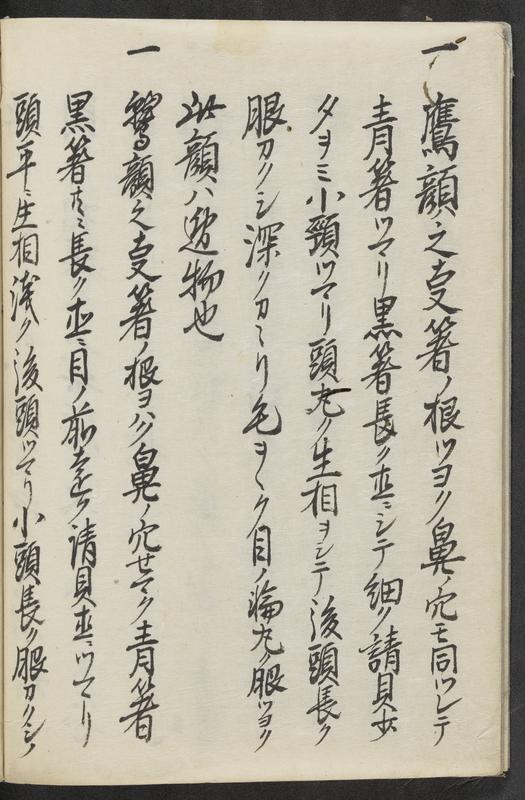 一 鷹顔之支箸ノ根ツヨク鼻ノ穴モ同ツレテ
青箸ツマリ黒箸長ク並ニシテ細ク請貝少
夕ヲミ小頸ツマリ頭丸ク生相ヲシテ後頭長ク
眼カクシ深クカヽリ毛ヲヽク目ノ輪丸ク眼ツヨク
此顔ハ逸物也
一 鷲顔之支箸ノ根ヨハク鼻ノ穴せマク青箸
黒箸共ニ長ク並ニ目ノ前遠ク請貝並ニツマリ
頭平ニ生相浅ク後頭ツマリ小頸長ク眼カクシ